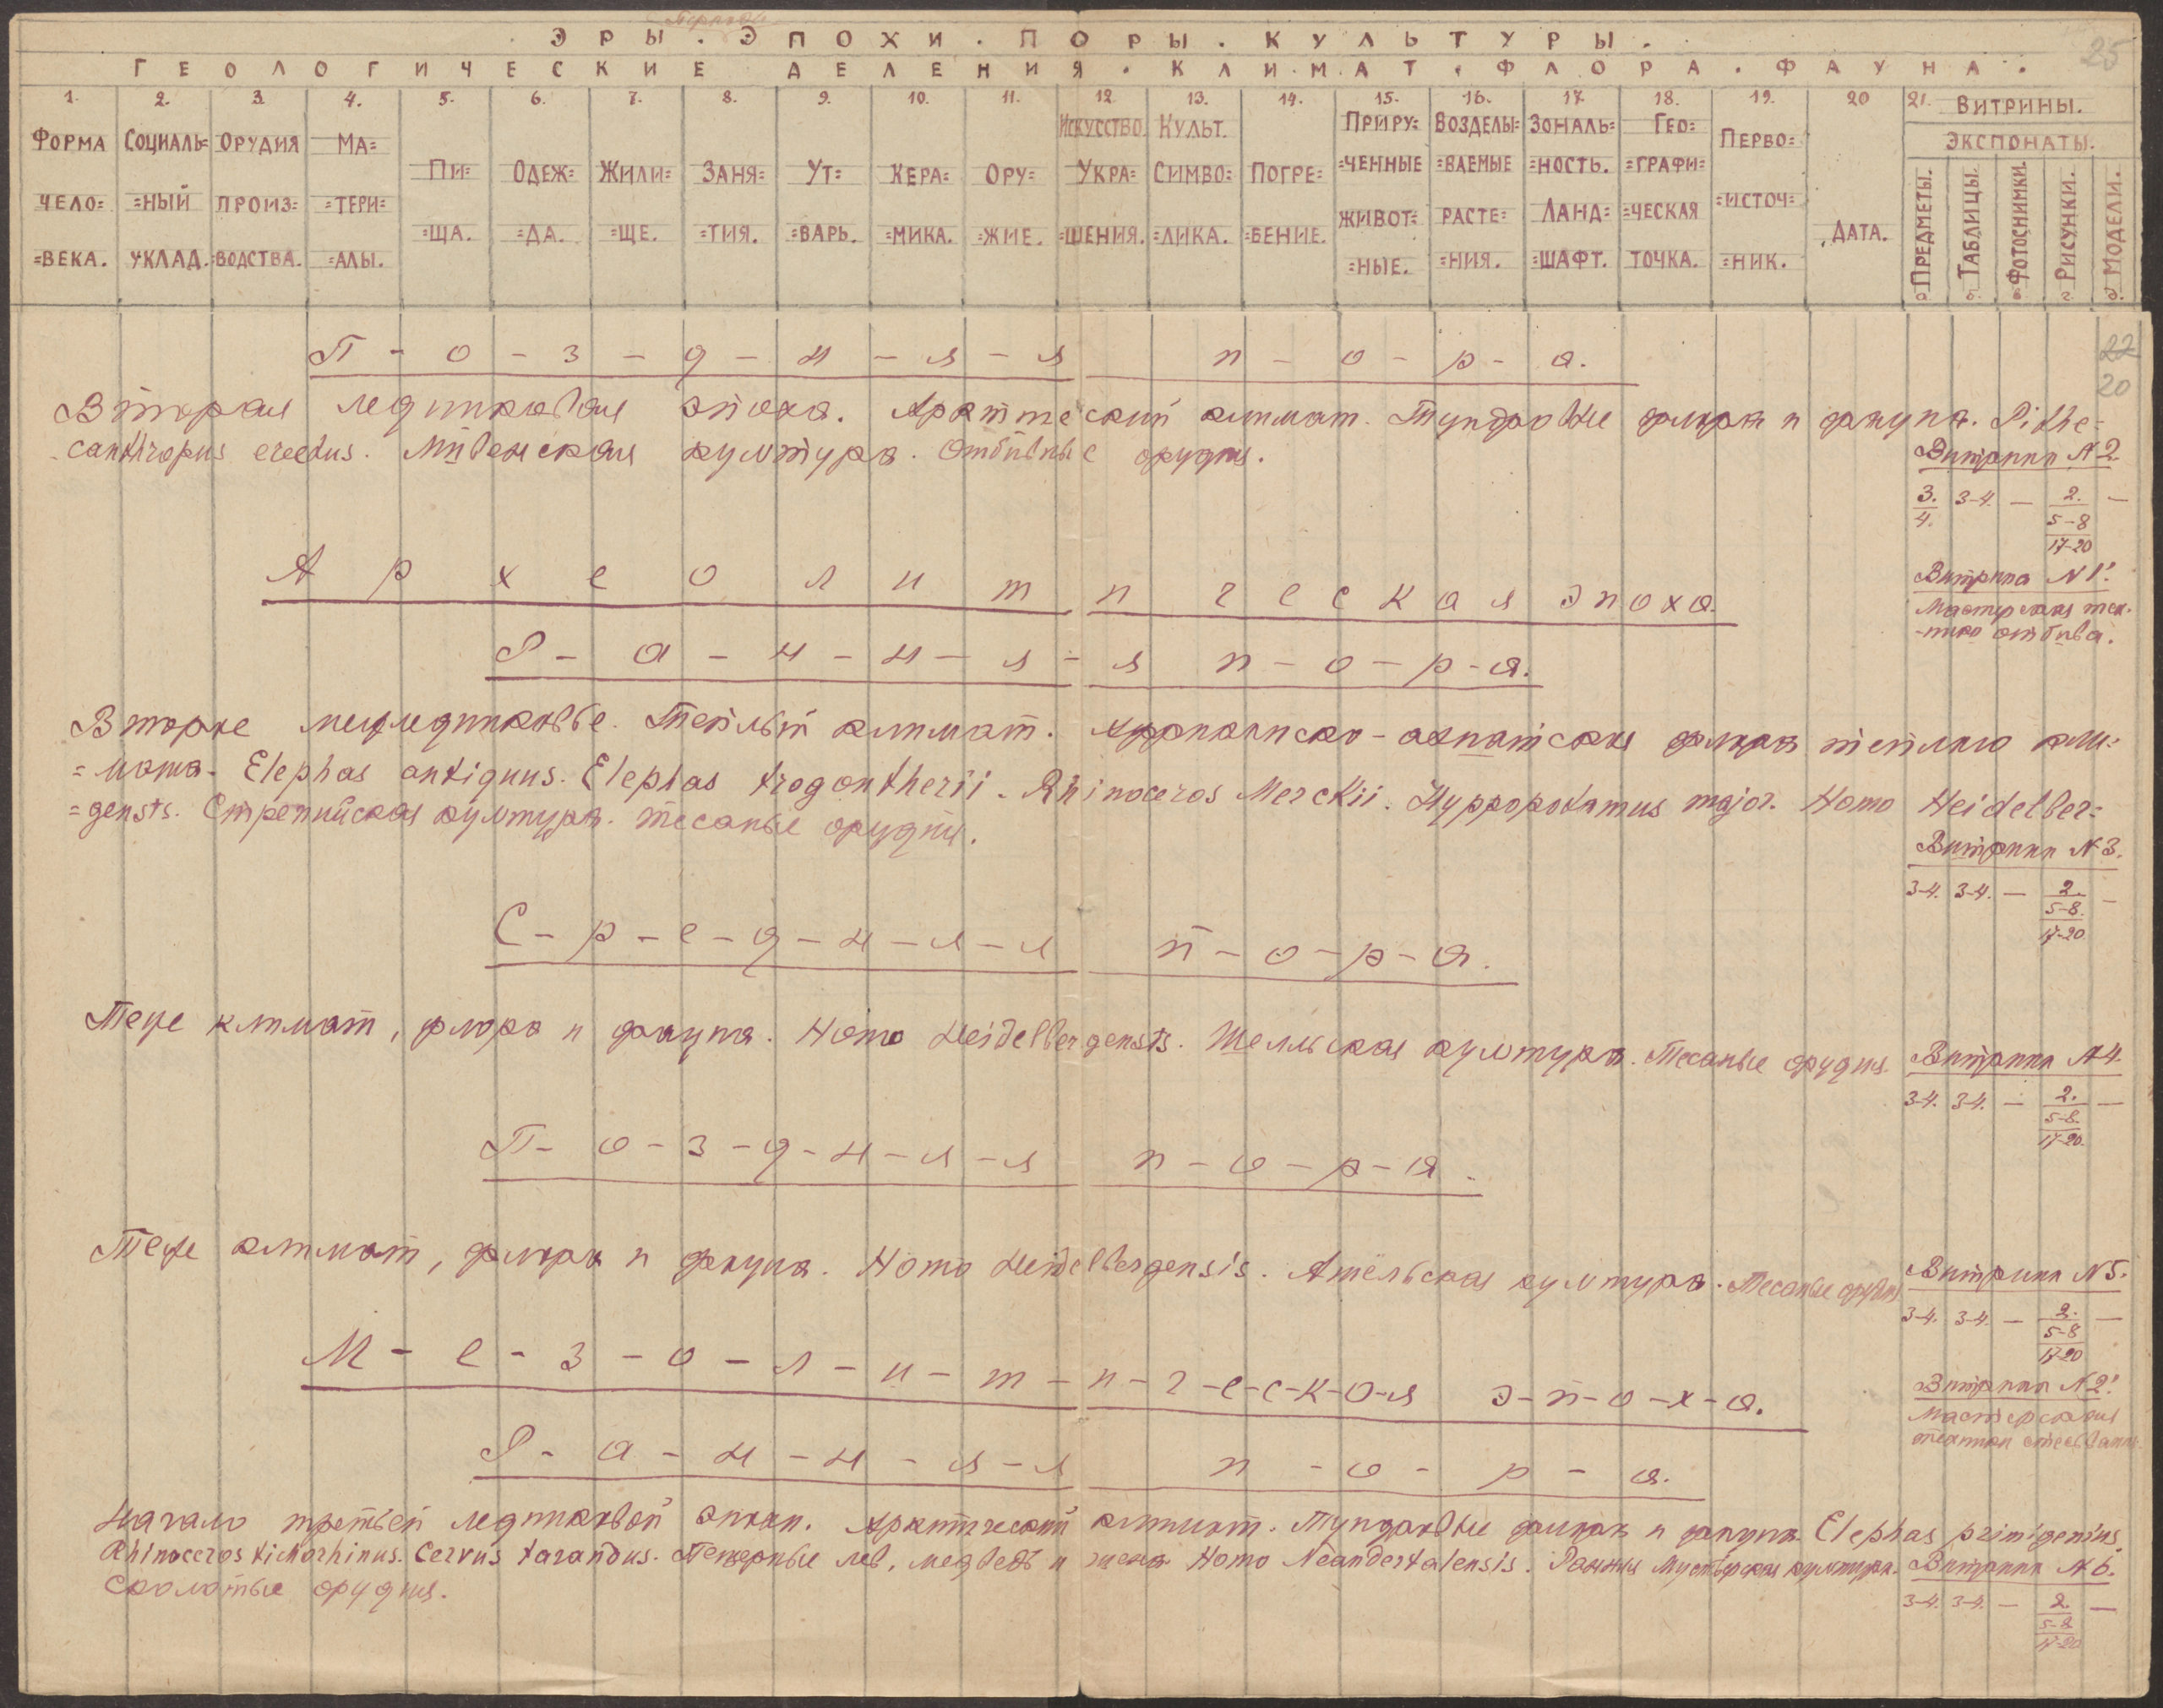 Периоды
ЭРЫ. ЭПОХИ. ПОРЫ. КУЛЬТУРЫ.
25
ГЕОЛОГИЧЕСКИЕ ДЕЛЕНИЯ. КЛИМАТ. ФЛОРА. ФАУНА.
1. ФОРМА ЧЕЛО=ВЕКА.
2. СОЦИАЛЬ=НЫЙ УКЛАД.
3. ОРУДИЯ ПРОИЗ=ВОДСТВА.
4. МА=ТЕРИ=АЛЫ.
5. ПИ=ЩА.
6. ОДЕЖ=ДА.
7. ЖИЛИ=ЩЕ.
8. ЗАНЯ=ТИЯ.
9. УТ=ВАРЬ.
10. КЕРА=МИКА.
11. ОРУ=ЖИЕ.
12. ИСКУССТВО. УКРА=ШЕНИЯ.
13. КУЛЬТ. СИМВО=ЛИКА.
14. ПОГРЕ=БЕНИЕ.
15. ПРИРУ=ЧЕННЫЕ ЖИВОТ=НЫЕ.
16. ВОЗДЕЛЫ=ВАЕМЫЕ РАСТЕ=НИЯ.
17. ЗОНАЛЬ=НОСТЬ. ЛАНД=ШАФТ.
18. ГЕО=ГРАФИ=ЧЕСКАЯ ТОЧКА.
19. ПЕРВО=ИСТОЧ=НИК.
20 ДАТА.
21. ВИТРИНЫ.
ЭКСПОНАТЫ.
а. ПРЕДМЕТЫ.
б. ТАБЛИЦЫ.
в. ФОТОСНИМКИ.
г. РИСУНКИ.
д. МОДЕЛИ.
П-о-з-д-н-я-я п-о-р-а.
22
20
Вторая ледниковая эпоха. Арктический климат. Тундровые флора и фауна. Pithe=
canthropus erectus. Мивенская культура. Отбивные орудия.
Витрина №2.
3./4. 3-4. — 2./5-8/17-20 —
Археолитическая эпоха.
Витрина №1!
Мастерская тех-
-ника отбива.
Р-а-н-н-я-я п-о-р-а.
Второе межледниковье. Теплый климат. Африканско-азиатская флора теплого кли=
=мата. Elephas antiquus. Elephas trogontherii. Rhinoceros Merckii. Hyppopotamus major. Homo Heidelber=
=gensts. Стрепийская культура. Тесаные орудия.
Витрина №3.
3-4. 3-4. — 2./5-8./17-20 —
С-р-е-д-н-я-я п-о-р-а.
Теже климат, флора и фауна. Homo Heidelbergensts. Шелльская культура. Тесаные орудия.
Витрина №4.
3-4. 3-4. — 2./5-8./17-20. —
П-о-з-д-н-я-я п-о-р-а.
Теже климат, флора и фауна. Homo Heidelbergensis. Ашёльская культура. Тесаные орудия
Витрина №5.
3-4. 3-4. — 2./5-8/17-20 —
М-е-з-о-л-и-т-и-ч-е-с-к-а-я э-п-о-х-а.
Витрина №2!
Мастерская
техники отесывания.
Р-а-н-н-я-я п-о-р-а.
Начало третьей ледниковой эпохи. Арктический климат. Тундровые флора и фауна. Elephas primigenius.
Rhinoceros tichorhinus. Cervus tarandus. Пещерные лев, медведь и гиена. Homo Neandertalensis. Ранняя Мустьерская культура.
Сколотые орудия.
Витрина №6.
3-4. 3-4. — 2./5-8/17-20 —